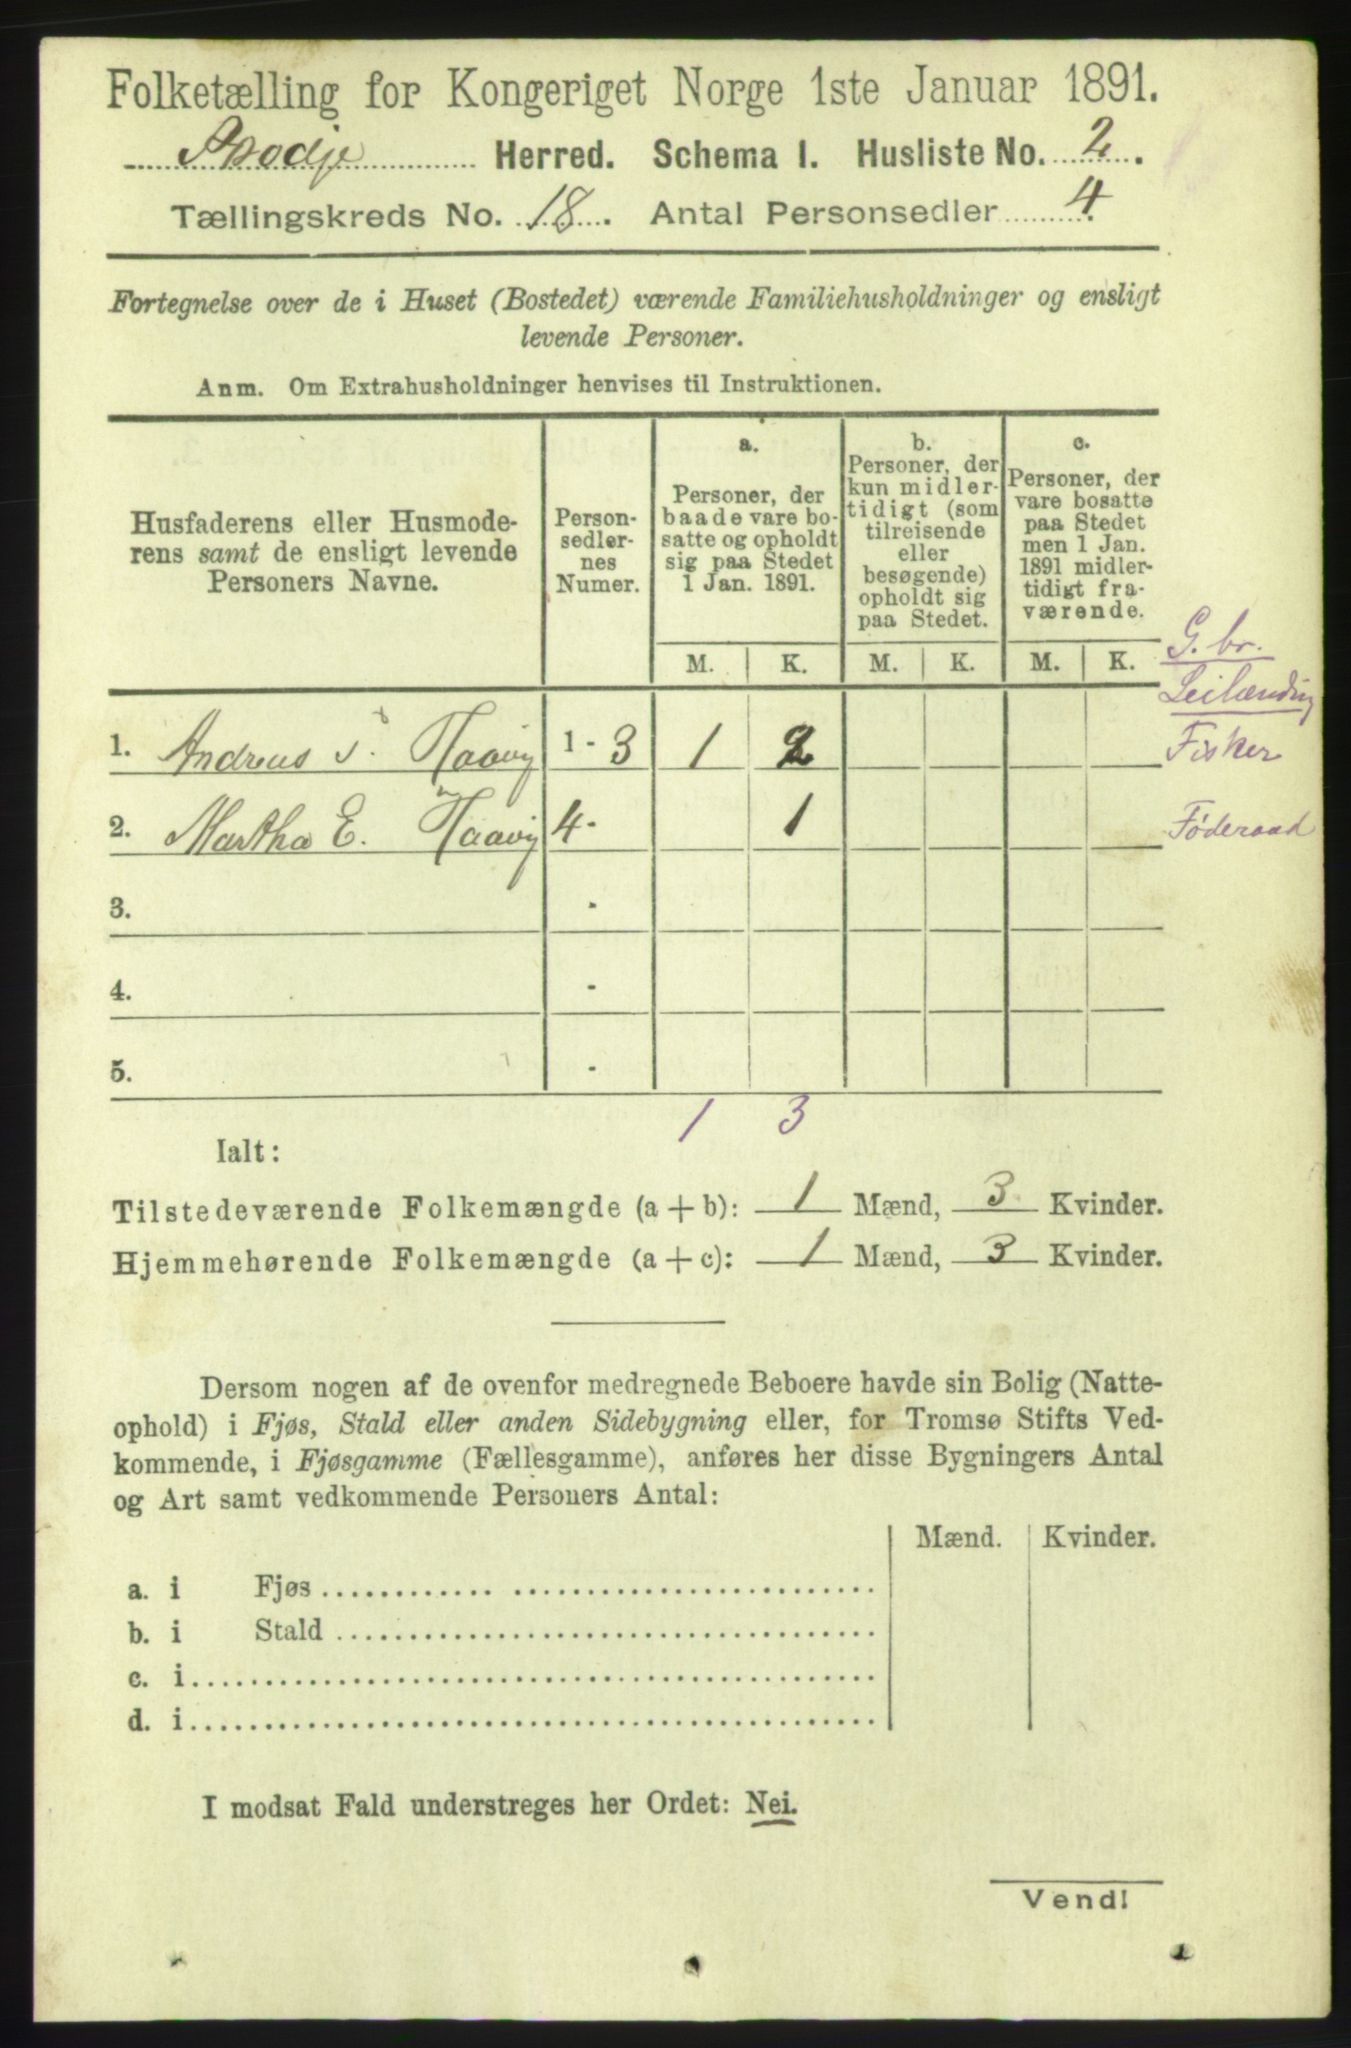 Folketælling for Kongeriget Norge 1ste Januar 1891.
Askvoll Herred. Schema I. Husliste No. 2.
Tællingskreds No. 18. Antal Personsedler 4.
Fortegnelse over de i Huset (Bostedet) værende Familiehusholdninger og ensligt
levende Personer.
Anm. Om Extrahusholdninger henvises til Instruktionen.
Husfaderens eller Husmode-
rens samt de ensligt levende
Personers Navne.
Person-
sedler-
nes
Numer.
a.
Personer, der
baade vare bo-
satte og opholdt
sig paa Stedet
1 Jan. 1891.
b.
Personer, der
kun midler-
tidigt (som
tilreisende
eller
besøgende)
opholdt sig
paa Stedet.
c.
Personer, der
vare bosatte
paa Stedet
men 1 Jan.
1891 midler-
tidigt fra-
værende.
M. K. M. K. M. K.
G. br.
Leilænding
1. Andreas Haavig 1 - 3 1 2 Fisker
2. Martha E. Haavig 4 - 1 Føderaad
3. -
4. -
5. -
1 3
Ialt:
Tilstedeværende Folkemængde (a + b): 1 Mænd, 3 Kvinder.
Hjemmehørende Folkemængde (a + c): 1 Mænd, 3 Kvinder.
Dersom nogen af de ovenfor medregnede Beboere havde sin Bolig (Natte-
ophold) i Fjøs, Stald eller anden Sidebygning eller, for Tromsø Stifts Ved-
kommende, i Fjøsgamme (Fællesgamme), anføres her disse Bygningers Antal
og Art samt vedkommende Personers Antal:
Mænd. Kvinder.
a. i Fjøs
b. i Stald
c. i
d. i
I modsat Fald understreges her Ordet: Nei.
Vend!